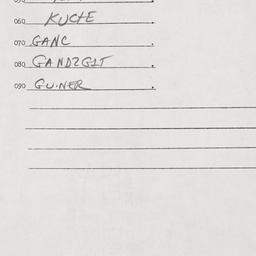 060 KUCHE
070 GANC
080 GANDZGIT
090 GUNER